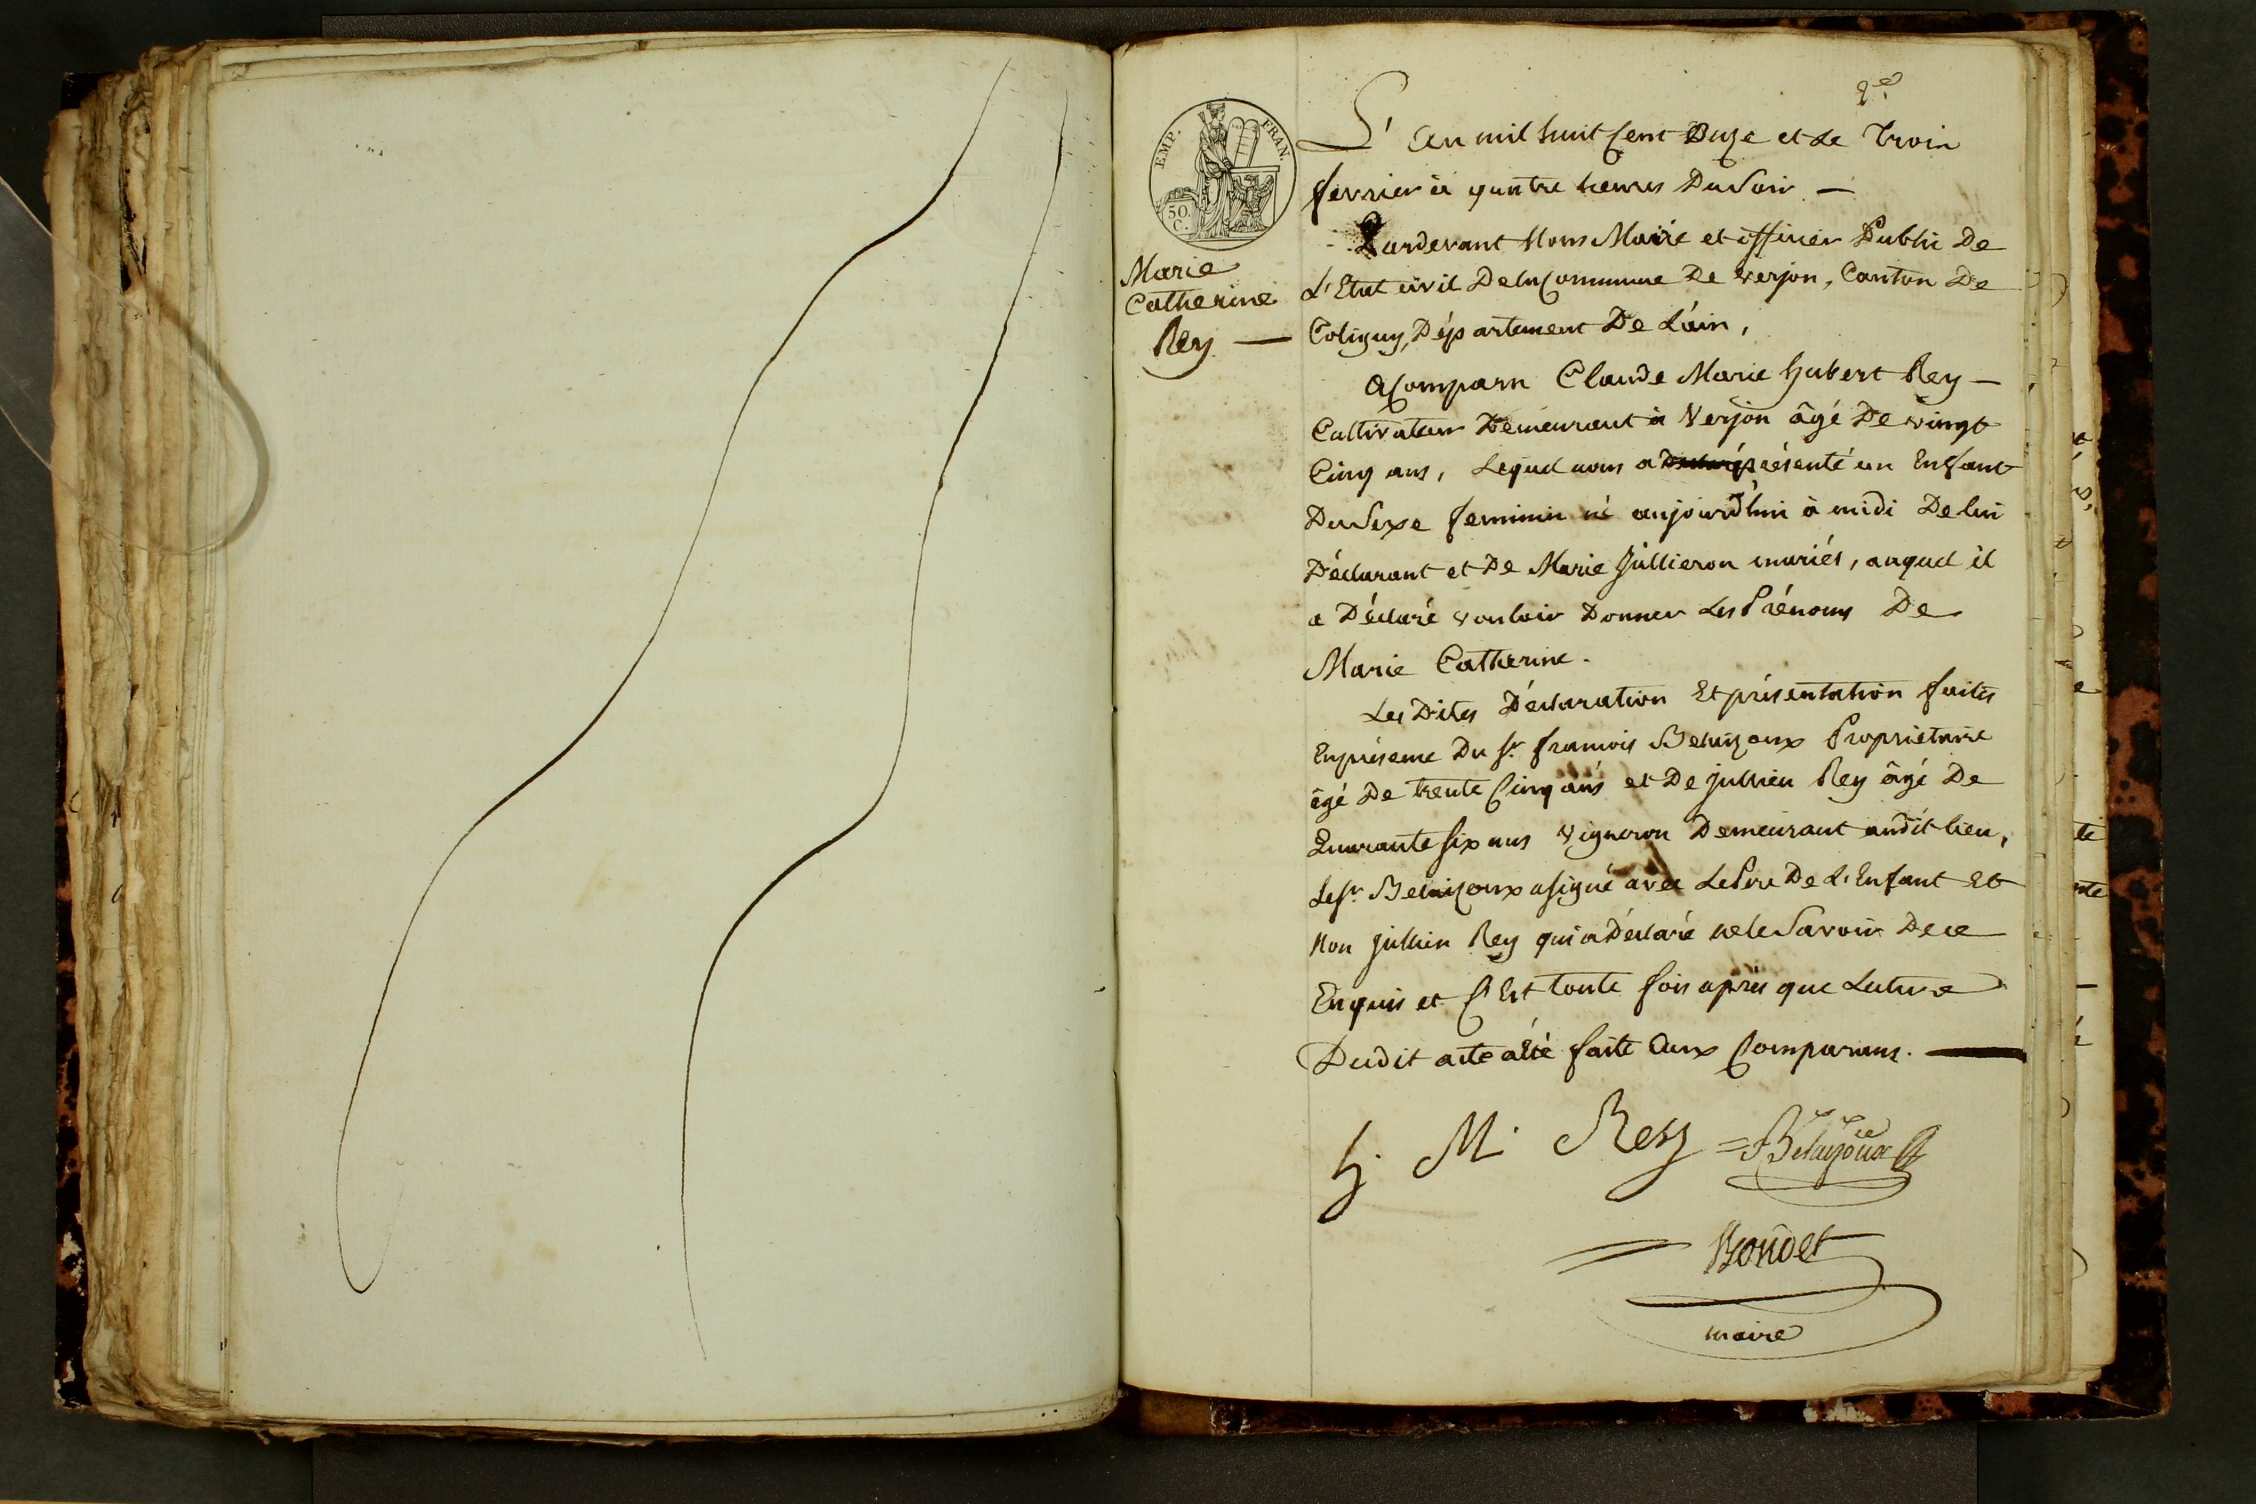 2e
EMP. FRAN.
50.
C.
Marie
Catherine
Rey —
L'an mil huit Cent Onze et le trois
fevrier à quatre heures Du Soir —
Pardevant Nous Maire et officier Public De
L'Etat civil De la Commune De verjon, Canton De
Coligny, Département De L'ain,
a Comparu Claude Marie hubert Rey —
Cultivateur Demeurant à Verjon âgé De vingt
Cinq ans, Lequel nous a présenté un Enfant
Du Sexe feminin né aujourd'hui à midi De lui
Déclarant et De Marie Jullieron mariés, auquel il
a Déclaré vouloir Donner Les Prénoms De
Marie Catherine.
Les Dites Déclaration Et présentation faites
En présence Du Sr. francois Beluzoux Propriétaire
âgé De trente Cinq ans et De Jullien Rey âgé De
Quarante Six ans vigneron Demeurant audit lieu,
Le Sr. Beluzoux a signé avec Le Pere De L'Enfant Et
Non Jullien Rey qui a Déclaré ne le Savoir De ce
Enquis et C'Est toute fois après que Lecture
Dudit acte a Eté faite aux Comparans.
h. M. Rey = Beluzoux
Boudet
maire